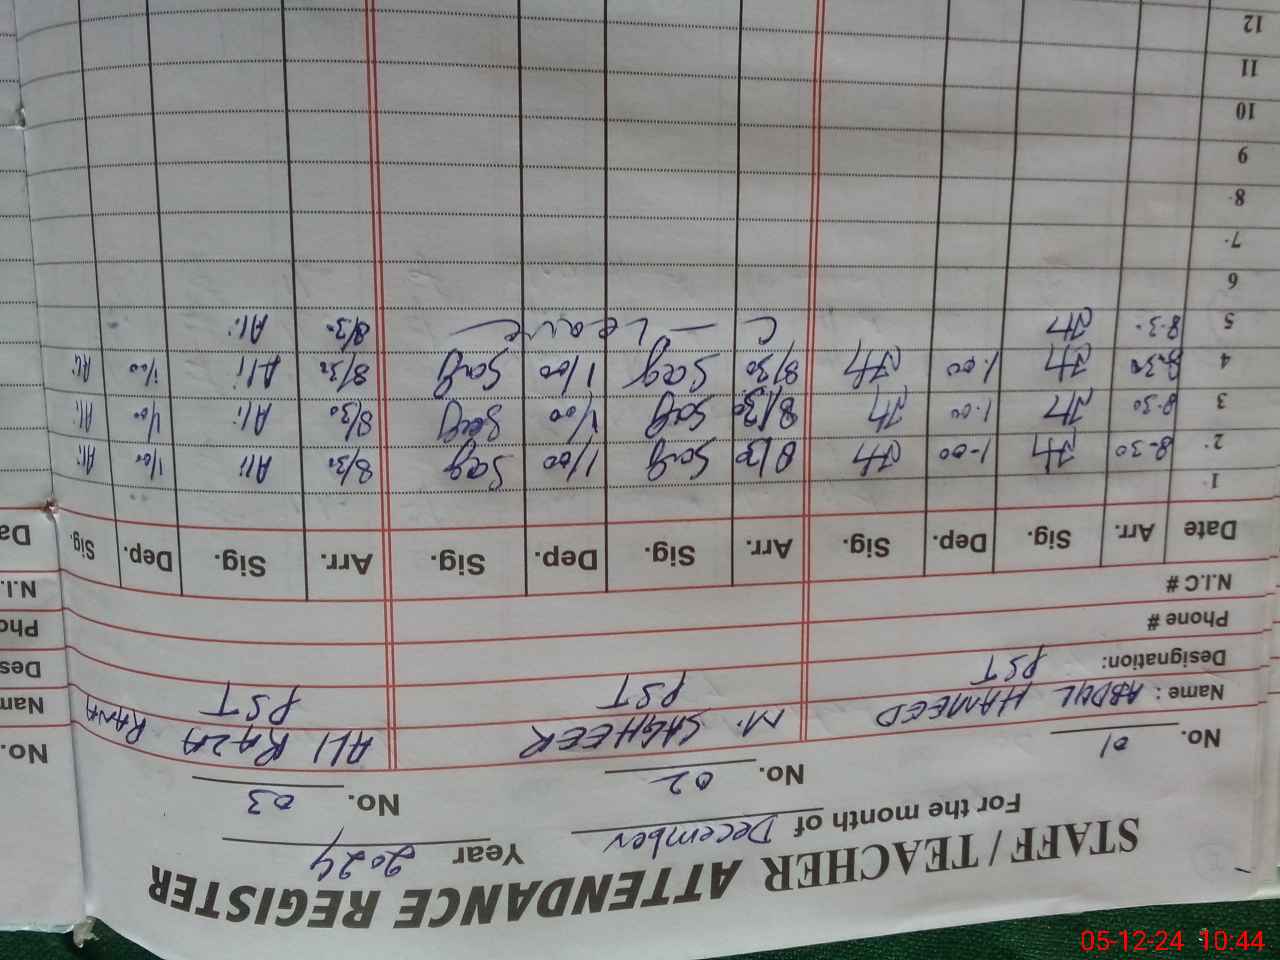 STAFF / TEACHER ATTENDANCE REGISTER
For the month of December Year 2024
No. 01 No. 02 No. 03 No.
Name: ABDUL HAMEED M. SAGHEER ALI RAZA RANA Nam
Designation: PST PST PST Des
Phone # Pho
N.I.C # N.I.
Date Arr. Sig. Dep. Sig. Arr. Sig. Dep. Sig. Arr. Sig. Dep. Sig. Da
1
2 8.30 1-00 8/30 Sag 1/00 Sag 8/30 Ali 1/00 Ali
3 8.30 1.00 8/30 Sag 1/00 Sag 8/30 Ali 1/00 Ali
4 8.30 1.00 8/30 Sag 1/00 Sag 8/30 Ali 1/00 Ali
5 8.30 C - Leave 8/30 Ali
6
7
8
9
10
11
12
05-12-24 10:44